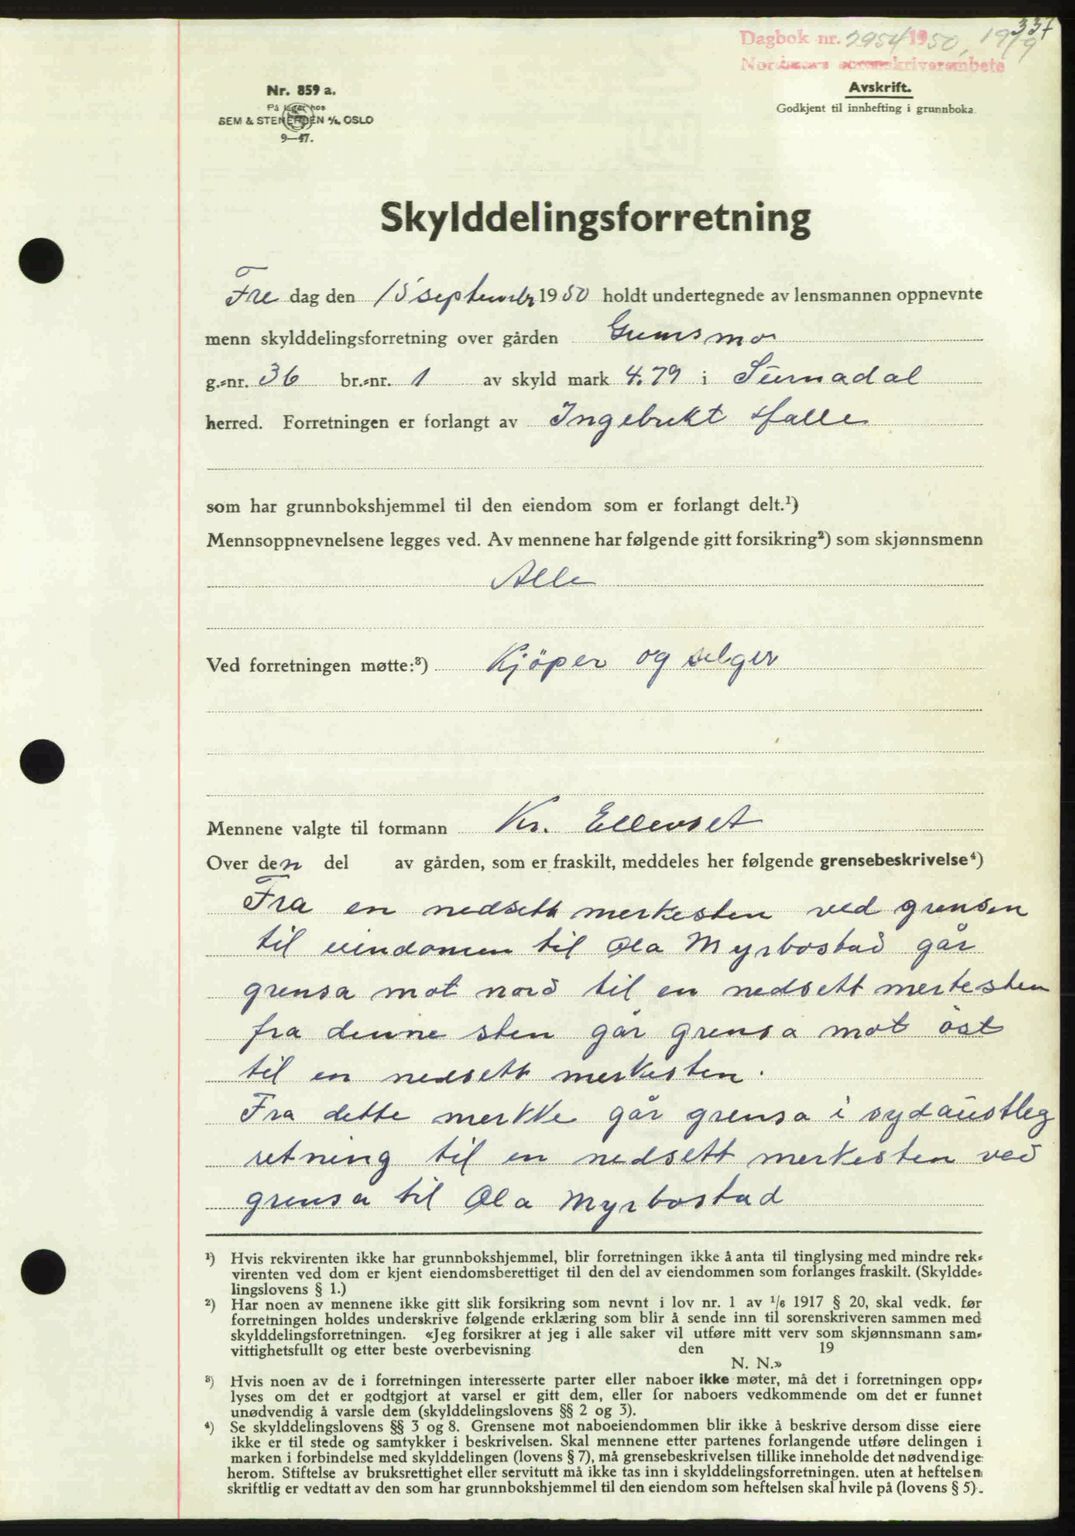 337
Dagbok nr. 2954 1950, 19/9
Nordmøre sorenskriverembete
Nr. 859 a.
På lager hos
SEM & STENERSEN A/S, OSLO
9—47.
Avskrift.
Godkjent til innhefting i grunnboka
Skylddelingsforretning
Fre dag den 15 september 1950 holdt undertegnede av lensmannen oppnevnte
menn skylddelingsforretning over gården Gumsmo
g.-nr. 36 br.-nr. 1 av skyld mark 4.79 i Surnadal
herred. Forretningen er forlangt av Ingebrikt Halle
som har grunnbokshjemmel til den eiendom som er forlangt delt.¹)
Mennsoppnevnelsene legges ved. Av mennene har følgende gitt forsikring²) som skjønnsmenn
Alle
Ved forretningen møtte:³) Kjöper og selger
Mennene valgte til formann Kr. Ellevset
Over den del av gården, som er fraskilt, meddeles her følgende grensebeskrivelse⁴)
Fra en nedsett merkesten ved grensen
til eiendomen til Ola Myrbostad går
grensa mot nord til en nedsett merkesten
fra denne sten går grensa mot öst
til en nedsett merkesten.
Fra dette merkke går grensa i sydaustleg
retning til en nedsett merkesten ved
grensa til Ola Myrbostad
¹) Hvis rekvirenten ikke har grunnbokshjemmel, blir forretningen ikke å anta til tinglysing med mindre rek-
virenten ved dom er kjent eiendomsberettiget til den del av eiendommen som forlanges fraskilt. (Skyldde-
lingslovens § 1.)
²) Har noen av mennene ikke gitt slik forsikring som nevnt i lov nr. 1 av 1/6 1917 § 20, skal vedk. før
forretningen holdes underskrive følgende erklæring som blir å sende inn til sorenskriveren sammen med
skylddelingsforretningen. «Jeg forsikrer at jeg i alle saker vil utføre mitt verv som skjønnsmann sam-
vittighetsfullt og etter beste overbevisning den 19
N. N.»
³) Hvis noen av de i forretningen interesserte parter eller naboer ikke møter, må det i forretningen opp-
lyses om det er godtgjort at varsel er gitt dem, eller for naboers vedkommende om det er funnet
unødvendig å varsle dem (skylddelingslovens §§ 2 og 3).
⁴) Se skylddelingslovens §§ 3 og 8. Grensene mot naboeiendommen blir ikke å beskrive dersom disse eiere
ikke er til stede og samtykker i beskrivelsen. Skal mennene etter partenes forlangende utføre delingen i
marken i forbindelse med skylddelingen (lovens § 7), må grensebeskrivelsen tillike inneholde det nødvendige
herom. Stiftelse av bruksrettighet eller servitutt må ikke tas inn i skylddelingsforretningen. uten at heftelsen
skriftlig er vedtatt av den som har grunnbokshjemmel til den eiendom som heftelsen skal hvile på (lovens § 5).